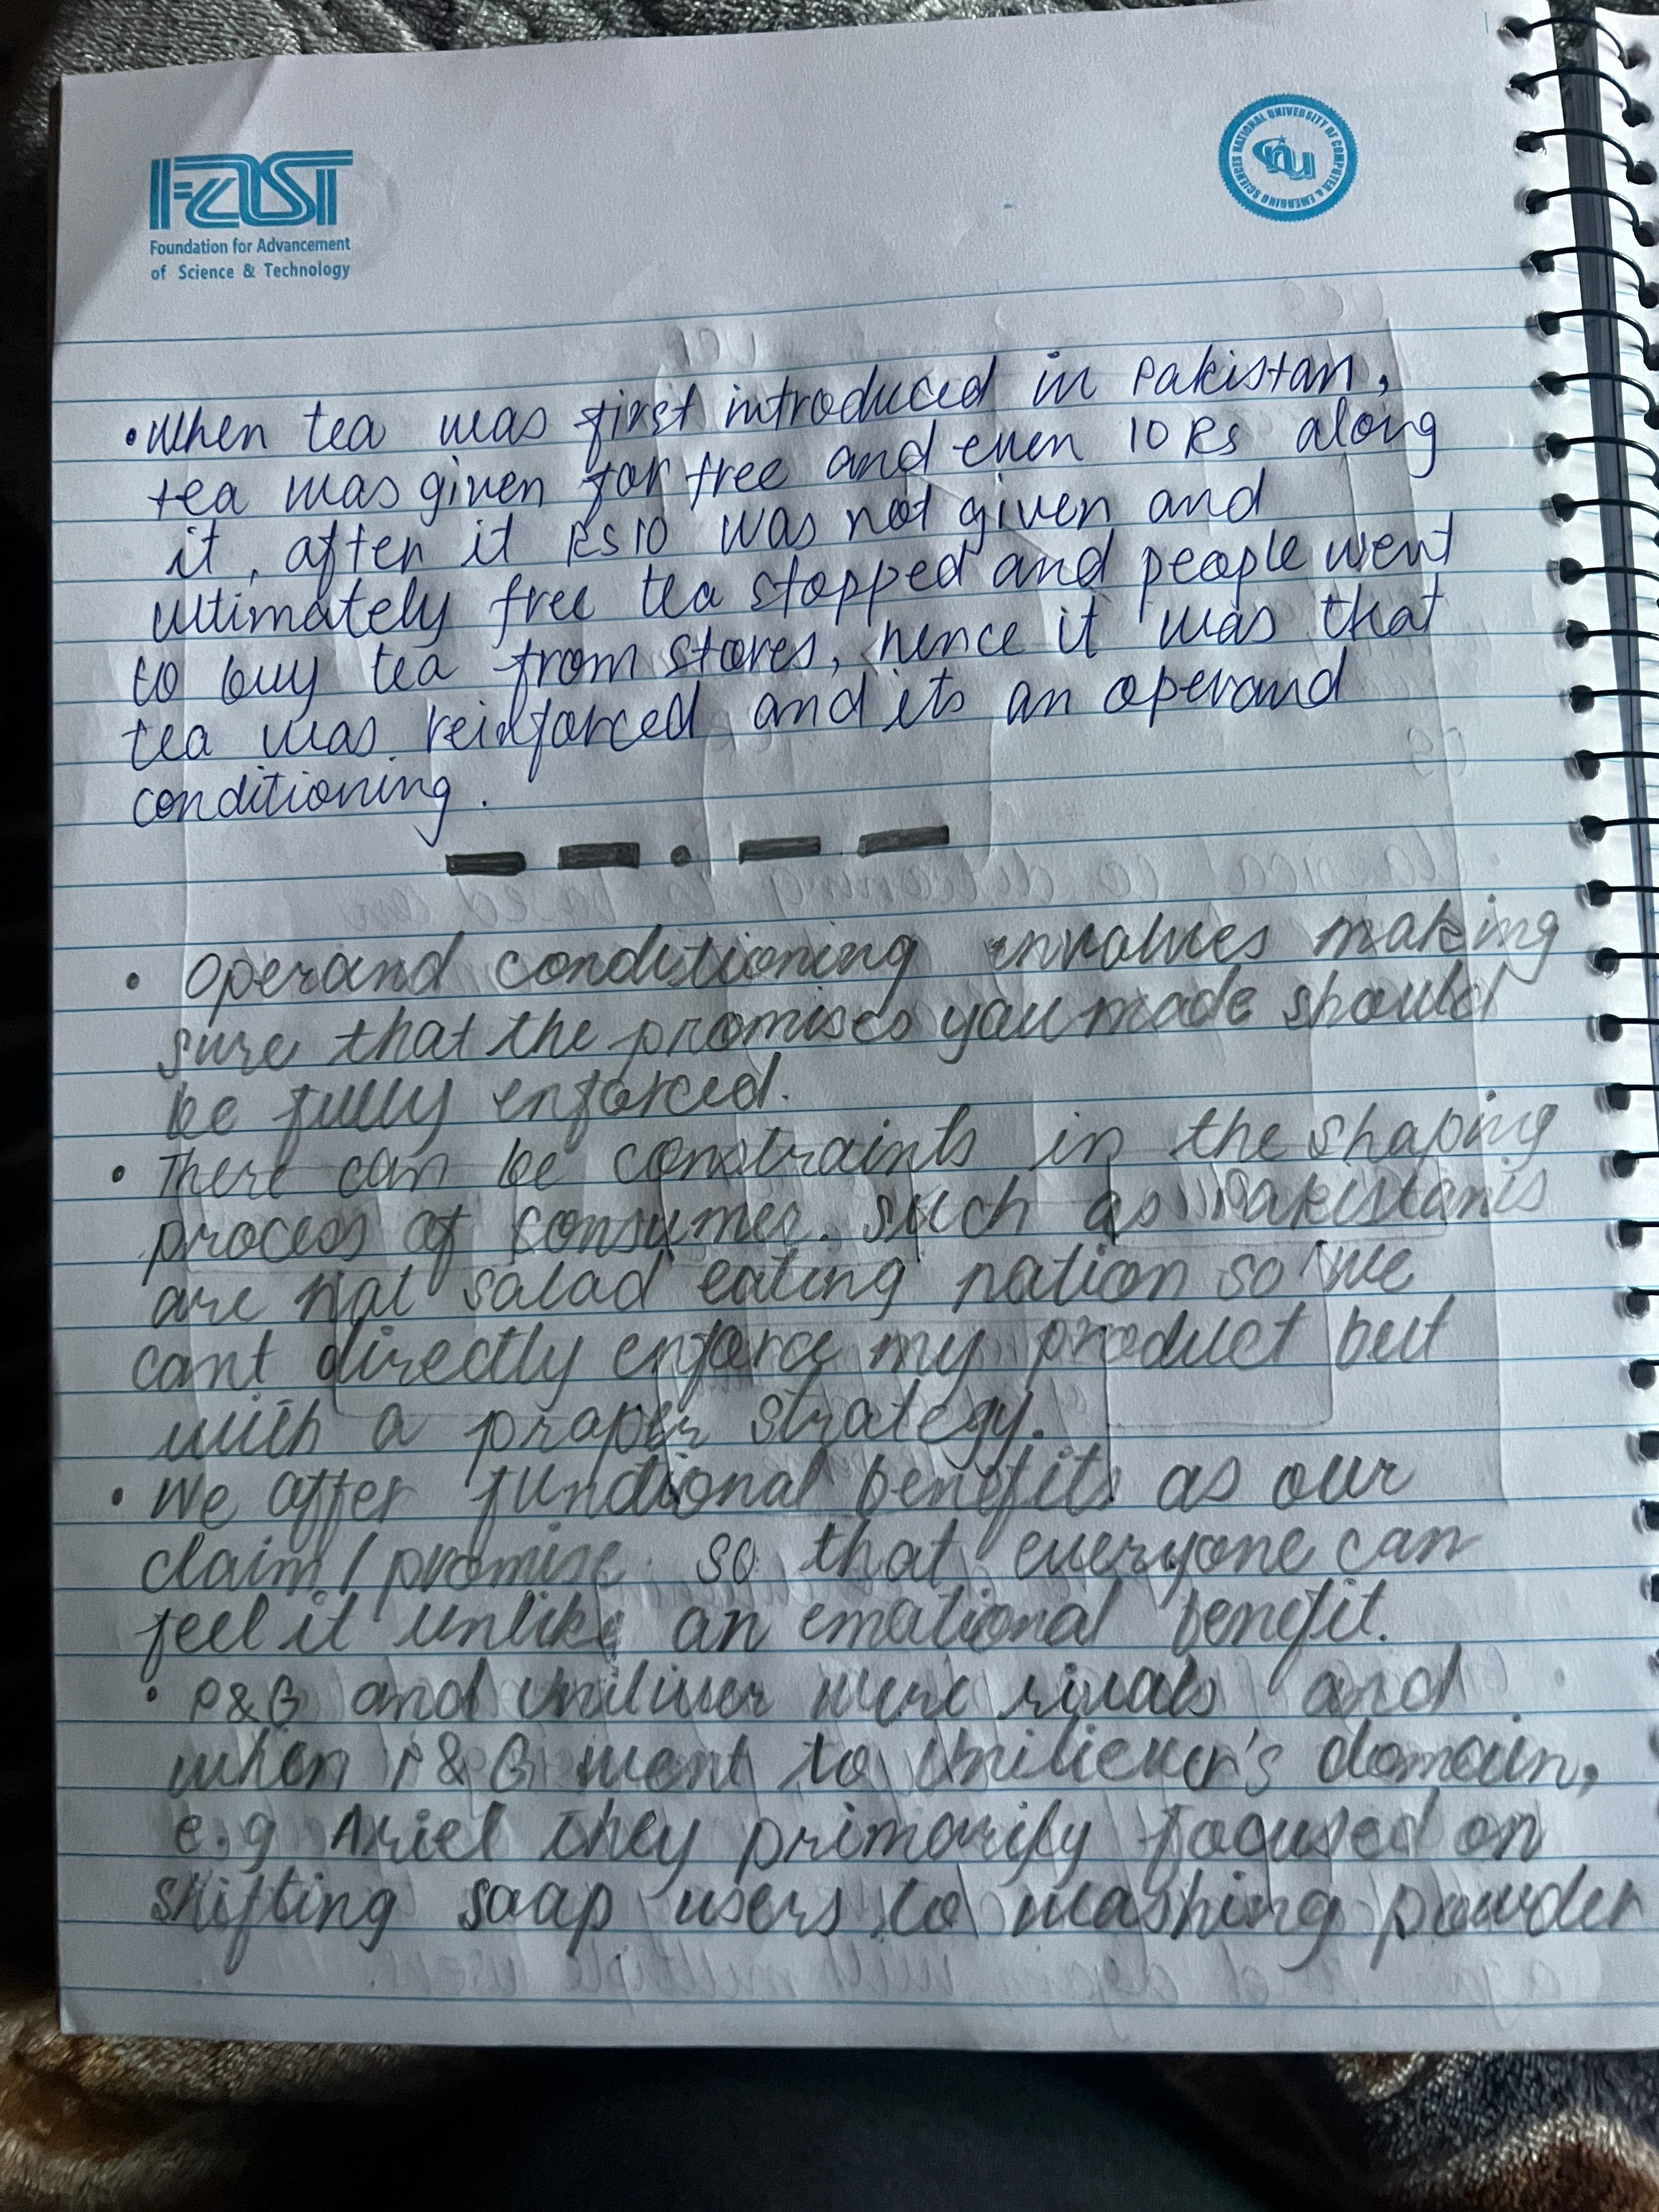 FAST
Foundation for Advancement
of Science & Technology
NATIONAL UNIVERSITY OF COMPUTER & EMERGING SCIENCES
nu
• When tea was first introduced in Pakistan,
tea was given for free and even 10 Rs along
it, after it Rs10 was not given and
ultimately free tea stopped and people went
to buy tea from stores, hence it was that
tea was reinforced and its an operand
conditioning.
• Operand conditioning involves making
sure that the promises you made should
be fully enforced.
• There can be constraints in the shaping
process of consumer. Such as Pakistanis
are not salad eating nation so we
cant directly enforce my product but
with a proper strategy.
• We offer functional benefits as our
claim/promise so that everyone can
feel it unlike an emotional benefit.
• P&G and Uniliver were rivals and
when P&G went to Uniliever's domain,
e.g Ariel they primarily focused on
shifting soap users to washing powder